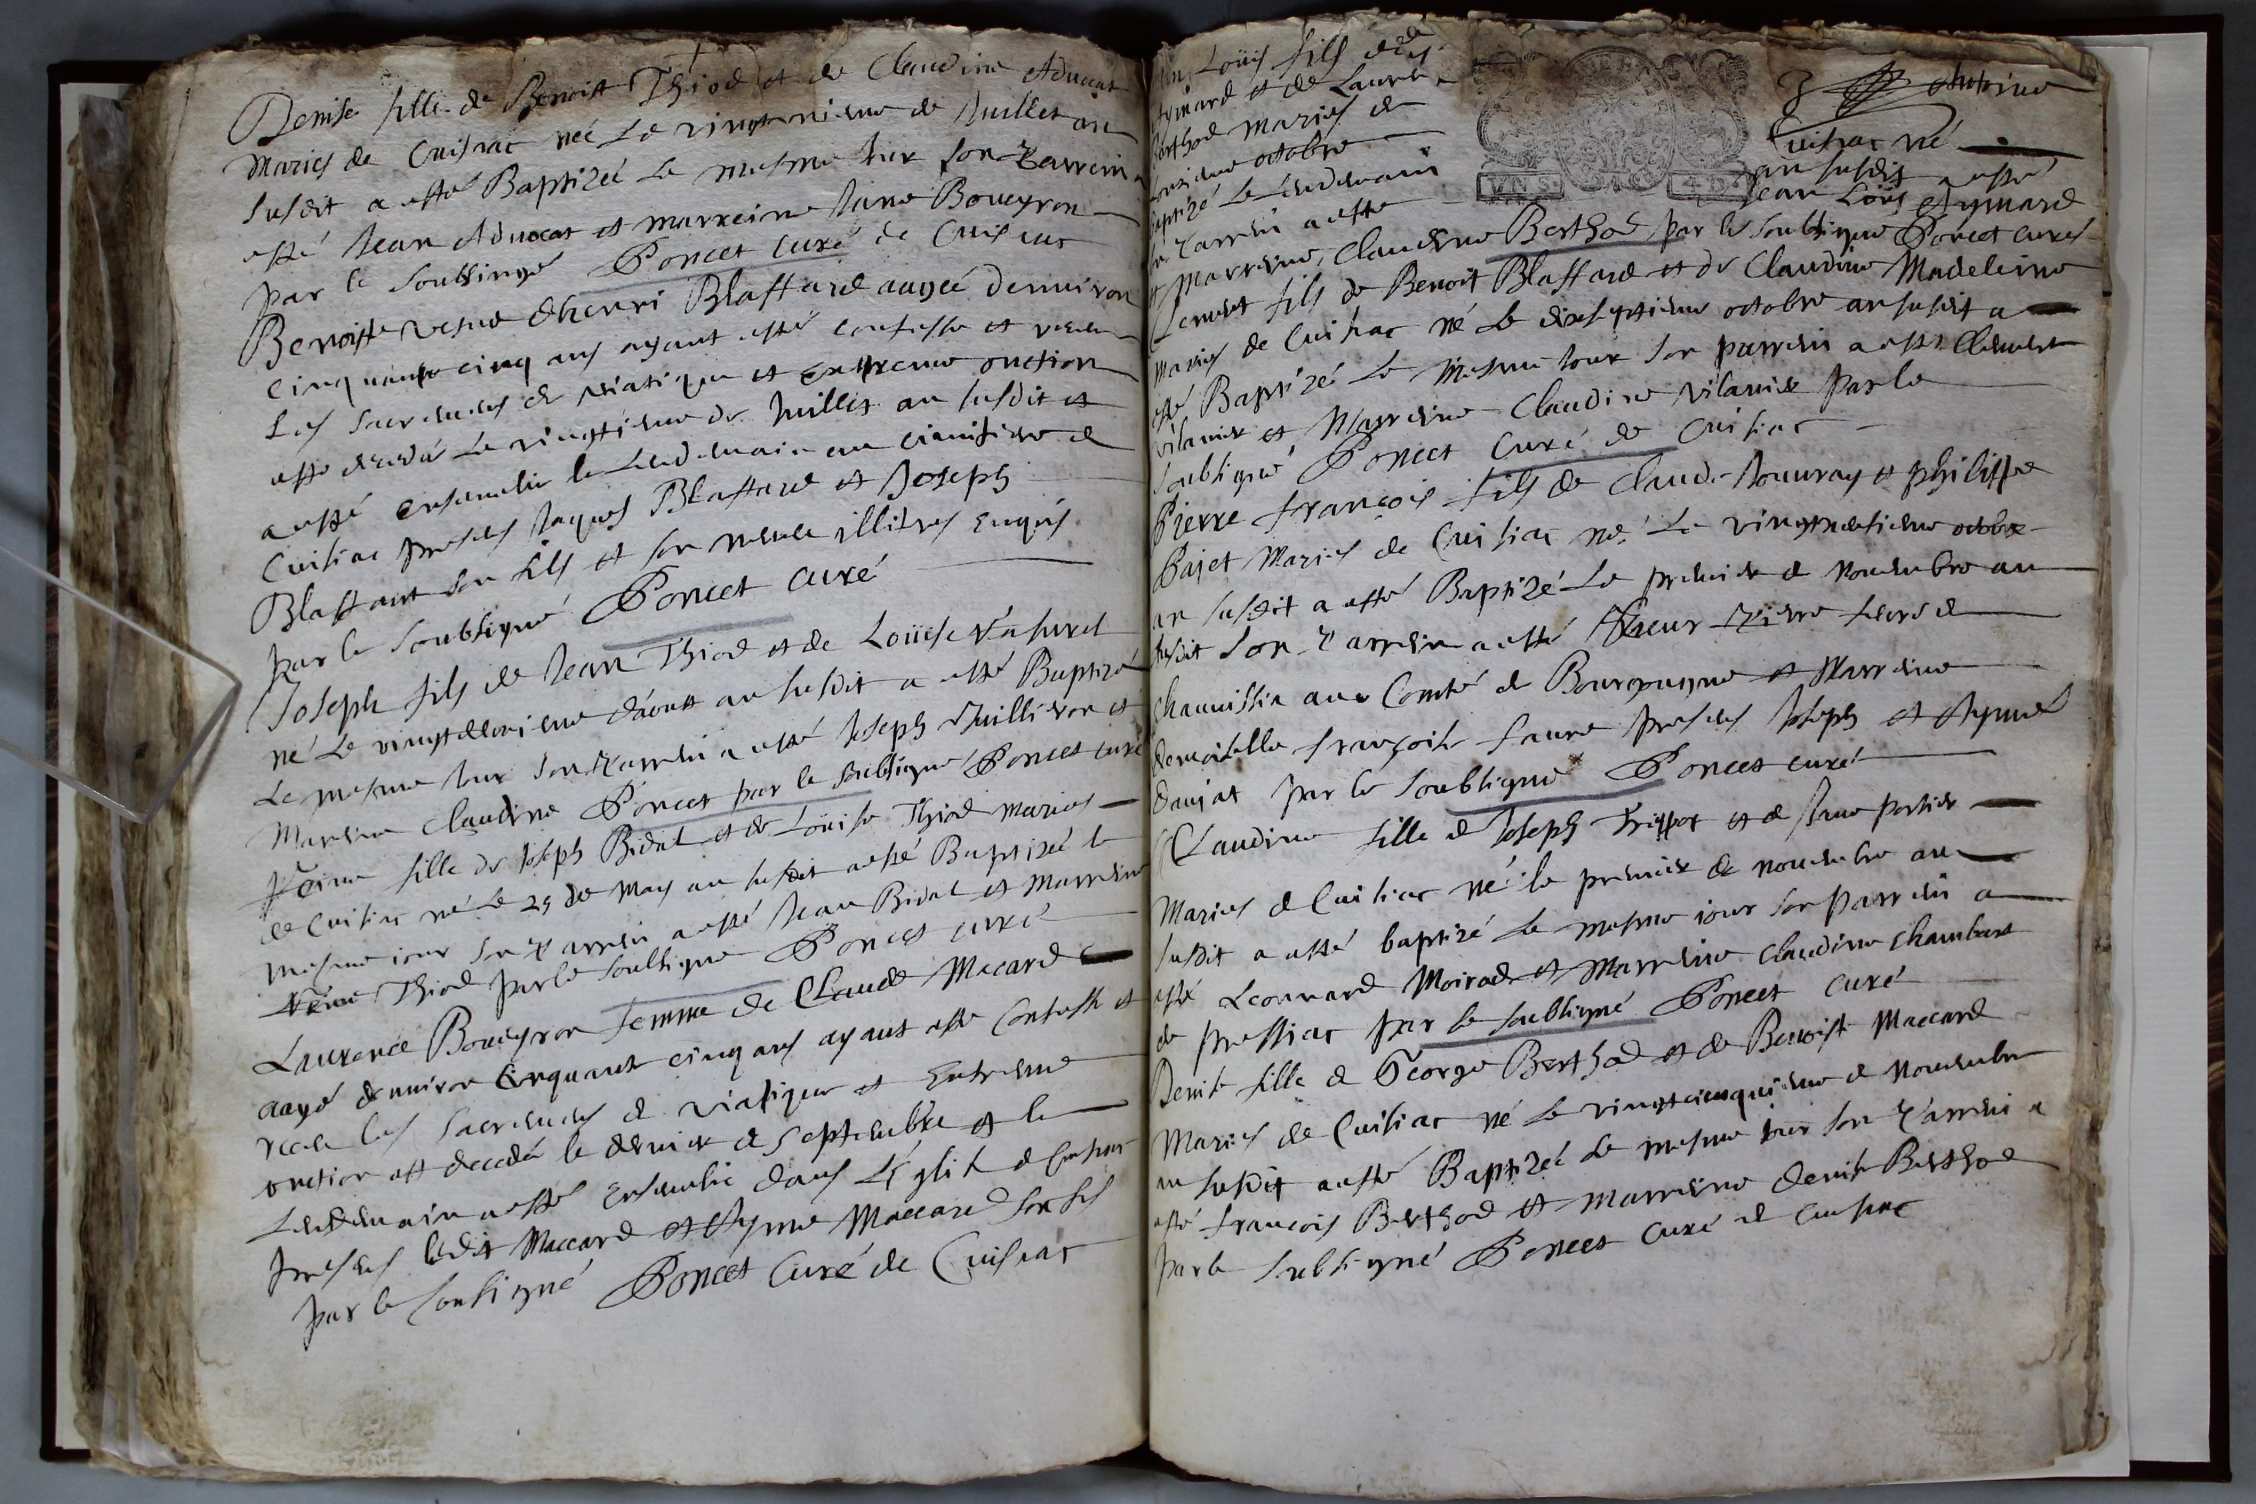 Denise fille de Benoist Thiod et de Claudine Aduocat
Mariés de Cuisiac née Le vingtunieme de Juillet an
susdit a esté Baptizée Le mesme Jour son Parrein a
esté Jean Aduocat et marreine Jane Boueyron
par le soubsigné Poncet curé de Cuisiac
Benoiste vefue d'henri Blaffard aagée denuiron
cinquante cinq ans ayant esté confessée et receu
Les sacremens de viatique et extreme onction
est decedée Le vingtieme de Juillet an susdit et
a esté enseuelie le Lendemain au cimitiere de
Cuisiac presens Jaques Blaffard et Joseph
Blaffard son fils et son illitres enquis
par le soubsigné Poncet curé
Joseph fils de Jean Thiod et de Loüise
né Le vingtdeuxieme d'aoust an susdit a esté Baptizé
Le mesme Jour son Parrein a esté Joseph Vuilleron et
Marreine Claudine Poncet par le soubsigné Poncet curé
fille de Joseph Bidal et de Loüise Thiod mariés
de Cuisiac né Le 29 de May an susdit a esté Baptizée le
mesme iour son Parrein a esté Jean Bidal et Marreine
Thiod par le soubsigné Poncet curé
Laurence Boueyron femme de Claude Macard
aagé denuiron cinquante cinq ans ayant esté confessé et
receu les sacremens de viatique et Extreme
onction est decedée le dernier de septembre et le
Lendemain a esté Enseuelie dans L'Eglise de Cuisiac
presens ledit Maccard et Ayme Maccard son fils
par le sousigné Poncet Curé de Cuisiac
Loüis fils de
Aymard et de Laurence
Berthod mariés de Cuisiac né
onzieme octobre an susdit
baptizé Le Lendemain a esté
Parrein a esté Jean Loüis Aymard
et Marreine, Claudine Berthod par le soubsigné Poncet curé
Clement fils de Benoit Blaffard et de Claudine Madeleine
mariés de Cuisiac né Le dixseptieme octobre an susdit a
esté Baptizé Le mesme Jour son parrein a esté Clement
vilanier et Marreine Claudine vilanier par le
soubsigné Poncet Curé de Cuisiac
Pierre françois fils de Claude Jouuray et philippe
Pajet Mariés de Cuisiac né Le octobre
an susdit a esté Baptizé Le premier de nouembre an
susdit son Parrein a esté Sieur Pierre de
chaumissia aux Comté de Bourgougne et Marreine
demoiselle françoise faure presens Joseph et Aymé
Daujat par le soubsigné Poncet curé
Claudine fille de Joseph Trippoz et de Jane portier
Mariés de Cuisiac né le premier de nouembre an
susdit a esté baptizé Le mesme iour son Parrein a
esté Leonnard Moirod et Marreine Claudine chambard
de pressiac par le soubsigné Poncet curé
Denise fille de George Berthod et de Benoiste Maccard
Mariés de Cuisiac né Le vingtcinquieme de Nouembre
an susdit a esté Baptizée Le mesme iour son Parrein a
esté françois Berthod et marreine denise Berthod
par le soubsigné Poncet curé de Cuisiac